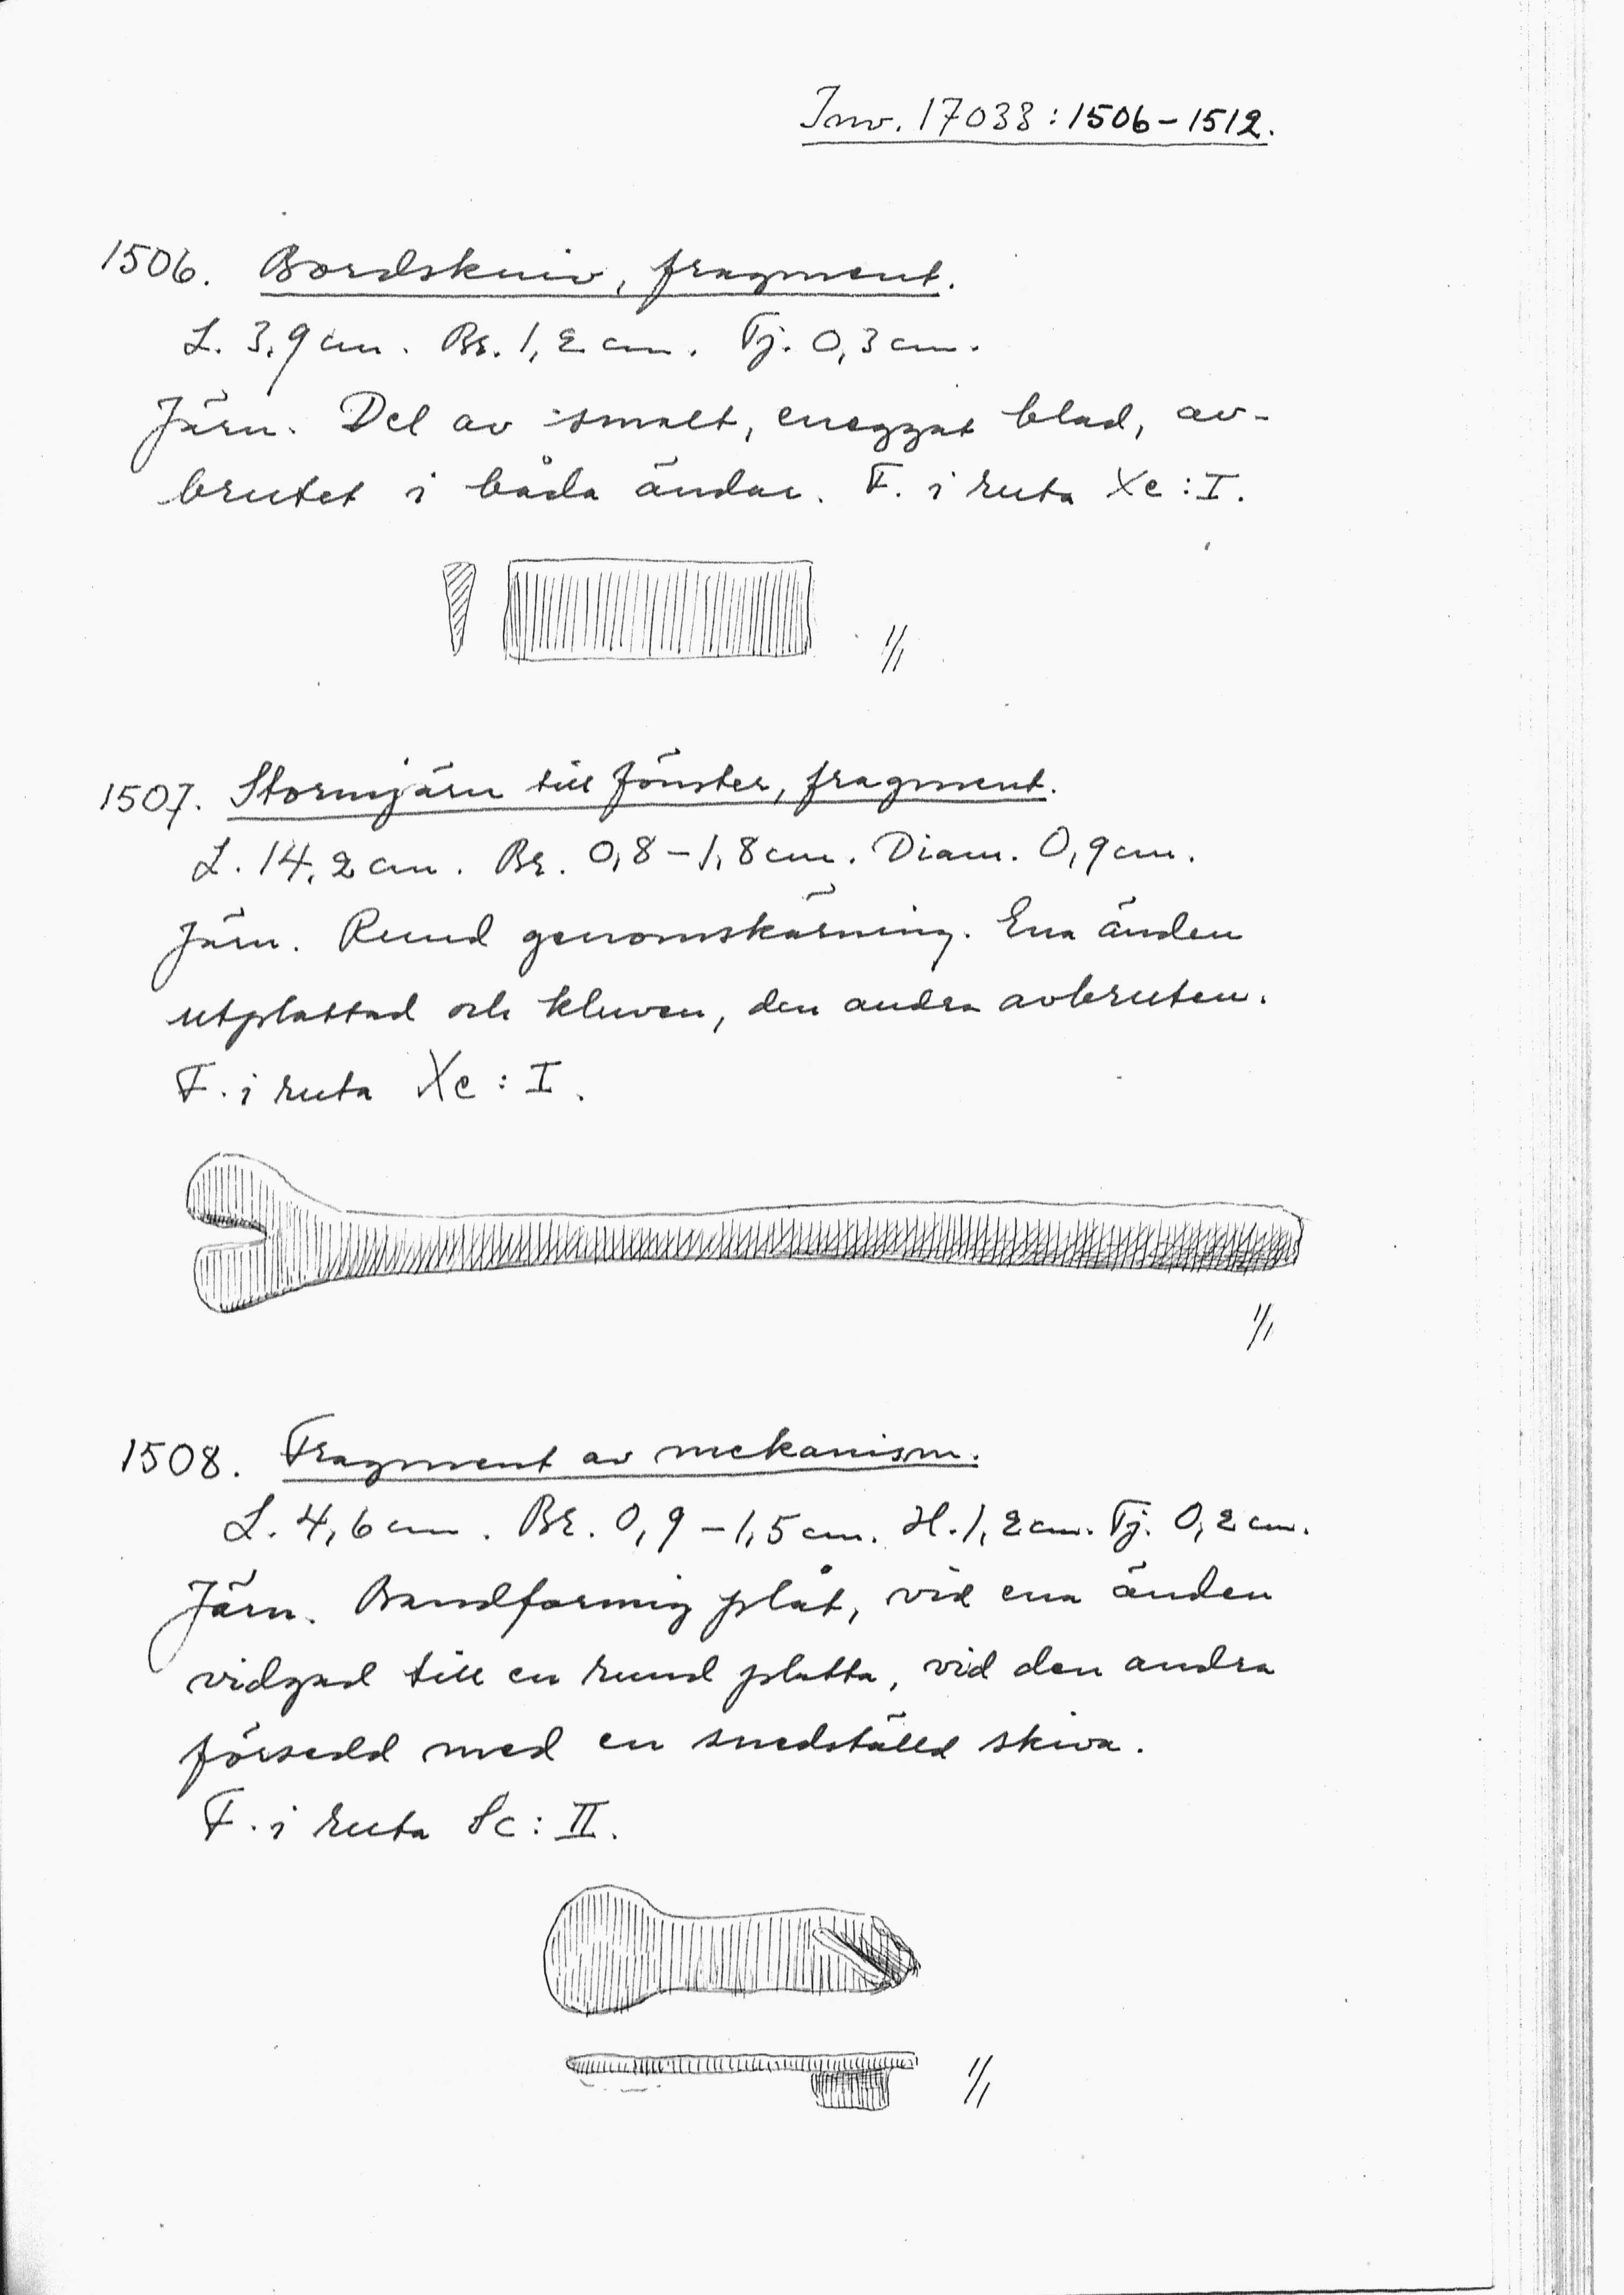 Inv. 17038:1506-1512.
1506. Bordskniv, fragment.
L. 3,9 cm. Br. 1,2 cm. Tj. 0,3 cm.
Järn. Del av smalt, eneggat blad, av-
brutet i båda ändar. F. i ruta Xc:I.
1/1
1507. Stormjärn till fönster, fragment.
L. 14,2 cm. Br. 0,8-1,8 cm. Diam. 0,9 cm.
Järn. Rund genomskärning. Ena änden
utplattad och kluven, den andra avbruten.
F. i ruta Xc:I.
1/1
1508. Fragment av mekanism.
L. 4,6 cm. Br. 0,9-1,5 cm. H. 1,2 cm. Tj. 0,2 cm.
Järn. Bandformig plåt, vid ena änden
vidgad till en rund platta, vid den andra
försedd med en snedställd skiva.
F. i ruta Sc:II.
1/1